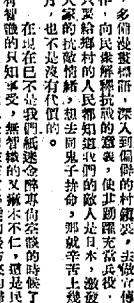 多備漫畫標語，深入到偏僻的村鎮裏，去做宣傳
，向民衆解釋抗戰的意義，使壯丁踴躍充當兵役，
只要給鄉村的人民都知道我們的敵人是日本，激發
人家的抗敵情緒，想去同鬼子拚命，那就辛苦上幾
月，也不是沒有代價的。
在現在已不是我們紙迷金醉專尙空談的時候了
有智識的只知享受，無智識的又麻木不仁，這是民